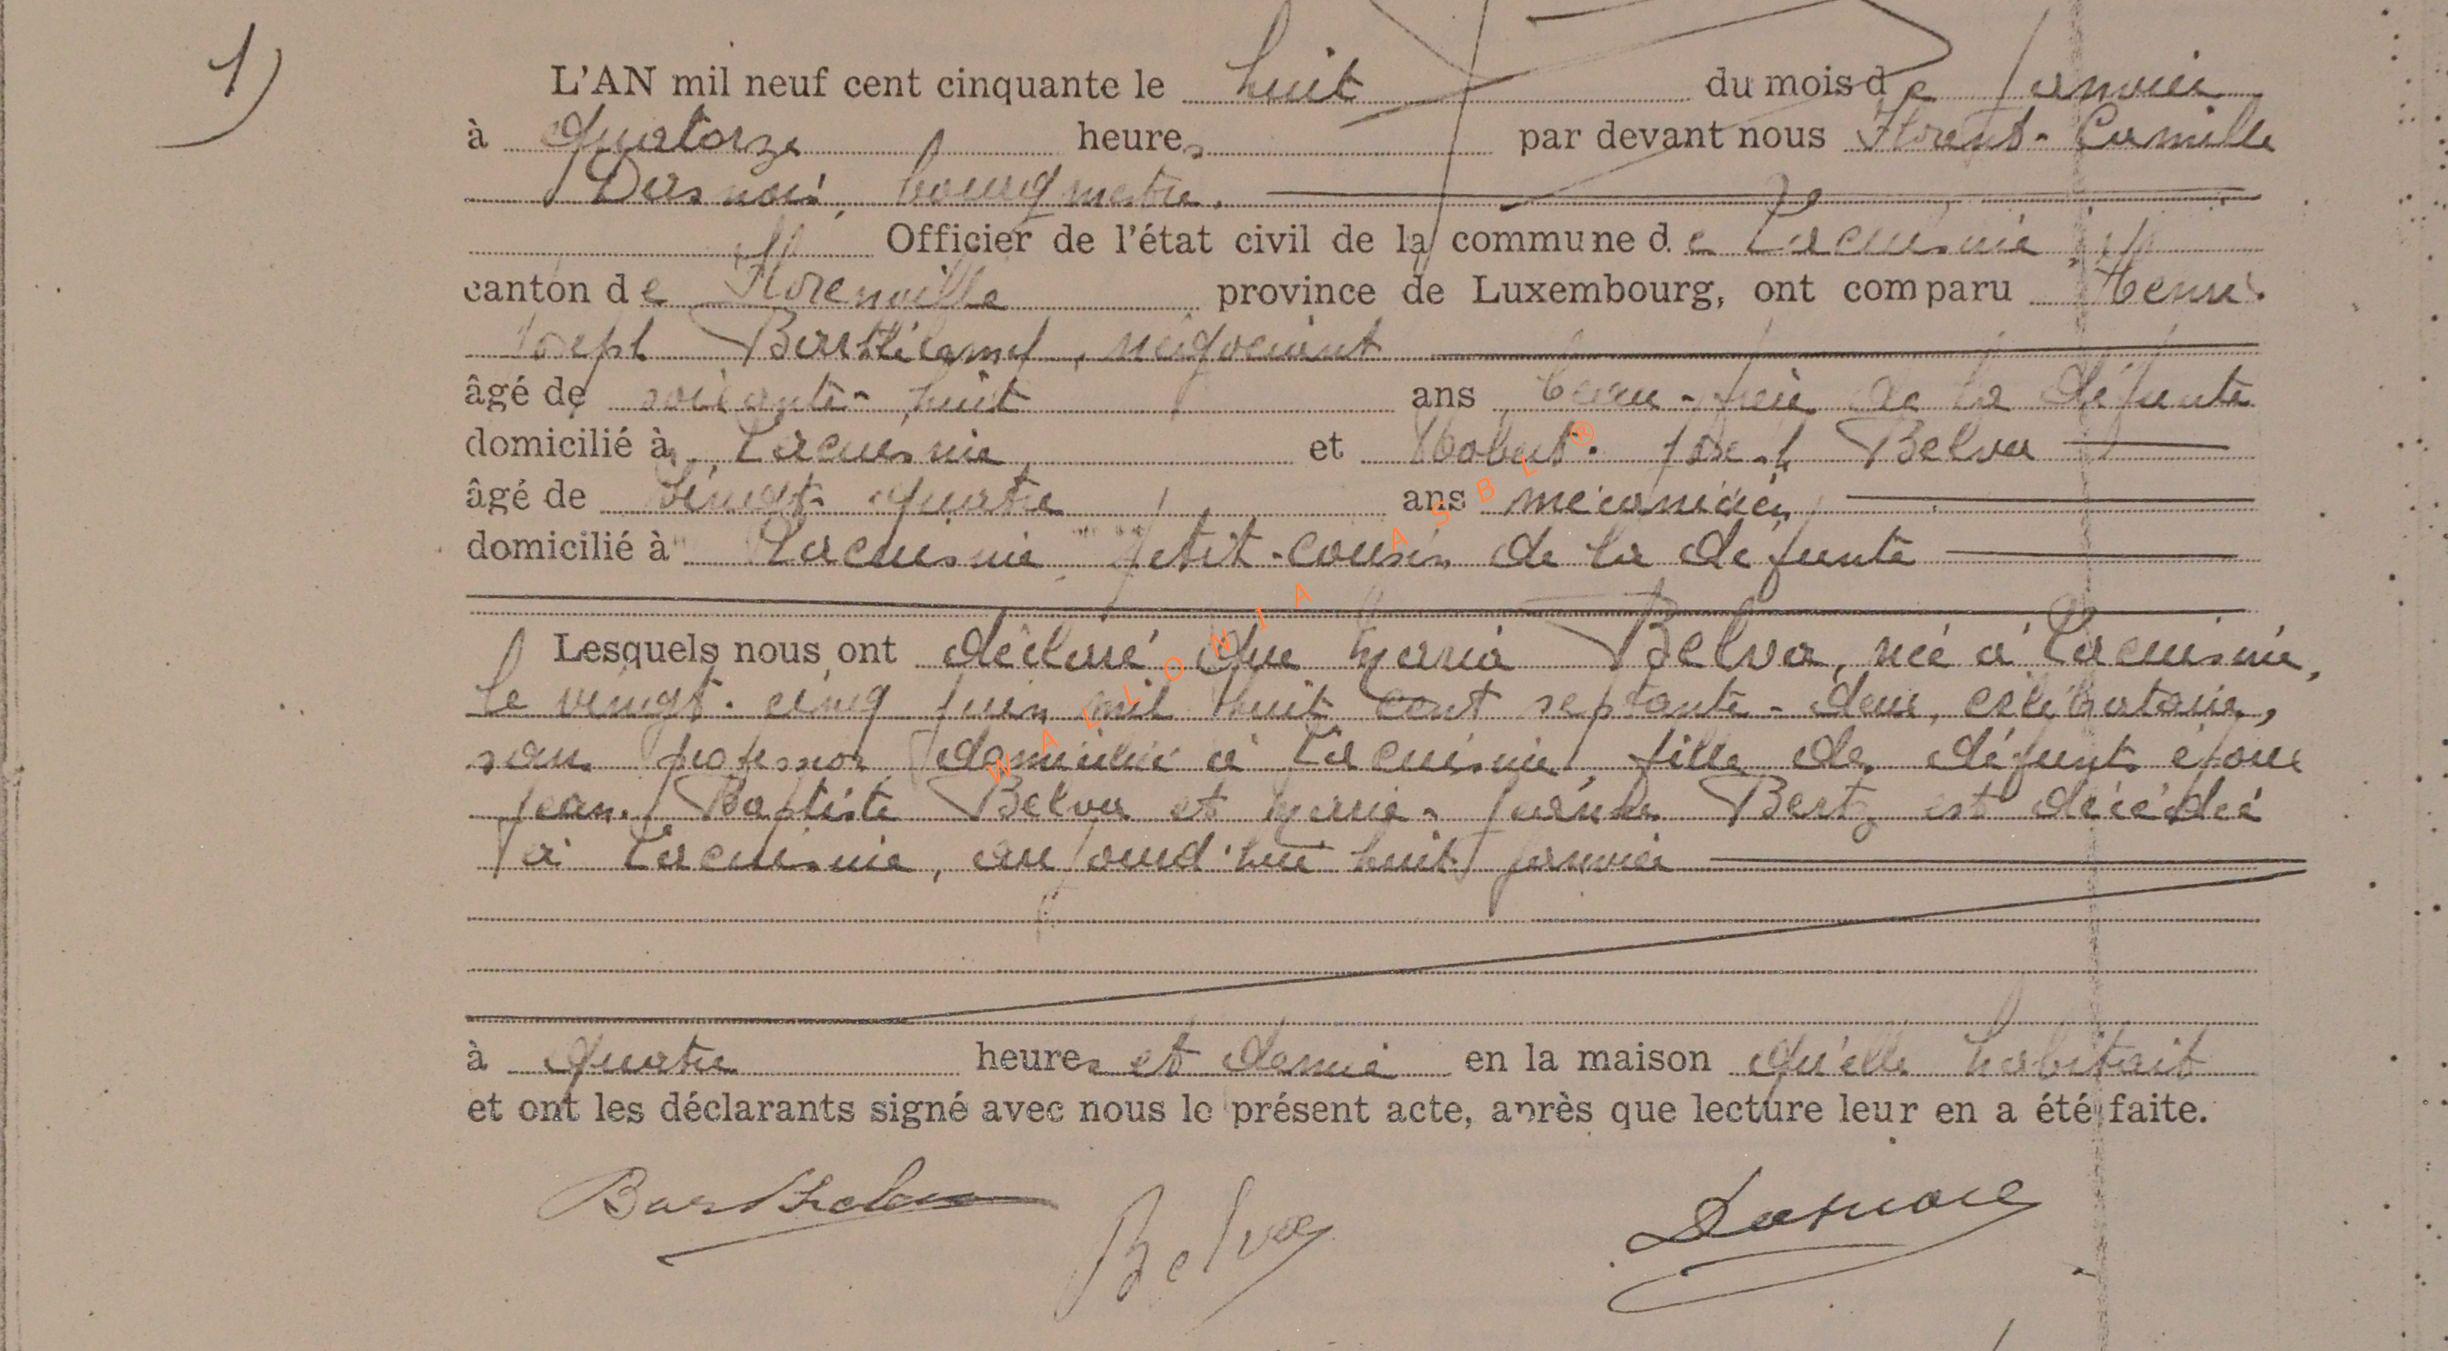 1)
L'AN mil neuf cent cinquante le huit du mois de janvier
à quatorze heures par devant nous Florent-Camille
Dasnoi, bourgmestre.
Officier de l'état civil de la commune de Lacuisine
canton de Florenville province de Luxembourg, ont comparu Henri
Joseph Barthélemy, négociant
âgé de soixante-huit ans beau-frère de la défunte
domicilié à Lacuisine et Hobert Joseph Belva
âgé de vingt-quatre ans mécanicien
domicilié à Lacuisine petit-cousin de la défunte
Lesquels nous ont déclaré que Maria Belva, née à Lacuisine,
le vingt-cinq juin mil huit cent septante-deux, célibataire,
sans profession domiciliée à Lacuisine, fille des défunts époux
Jean-Baptiste Belva et Marie-Jeanne Bertz est décédée
à Lacuisine, aujourd'hui huit janvier
à quatre heures et demie en la maison qu'elle habitait
et ont les déclarants signé avec nous le présent acte, après que lecture leur en a été faite.
Barthelem Belva Dasnoi
WALLONIA ASBL @